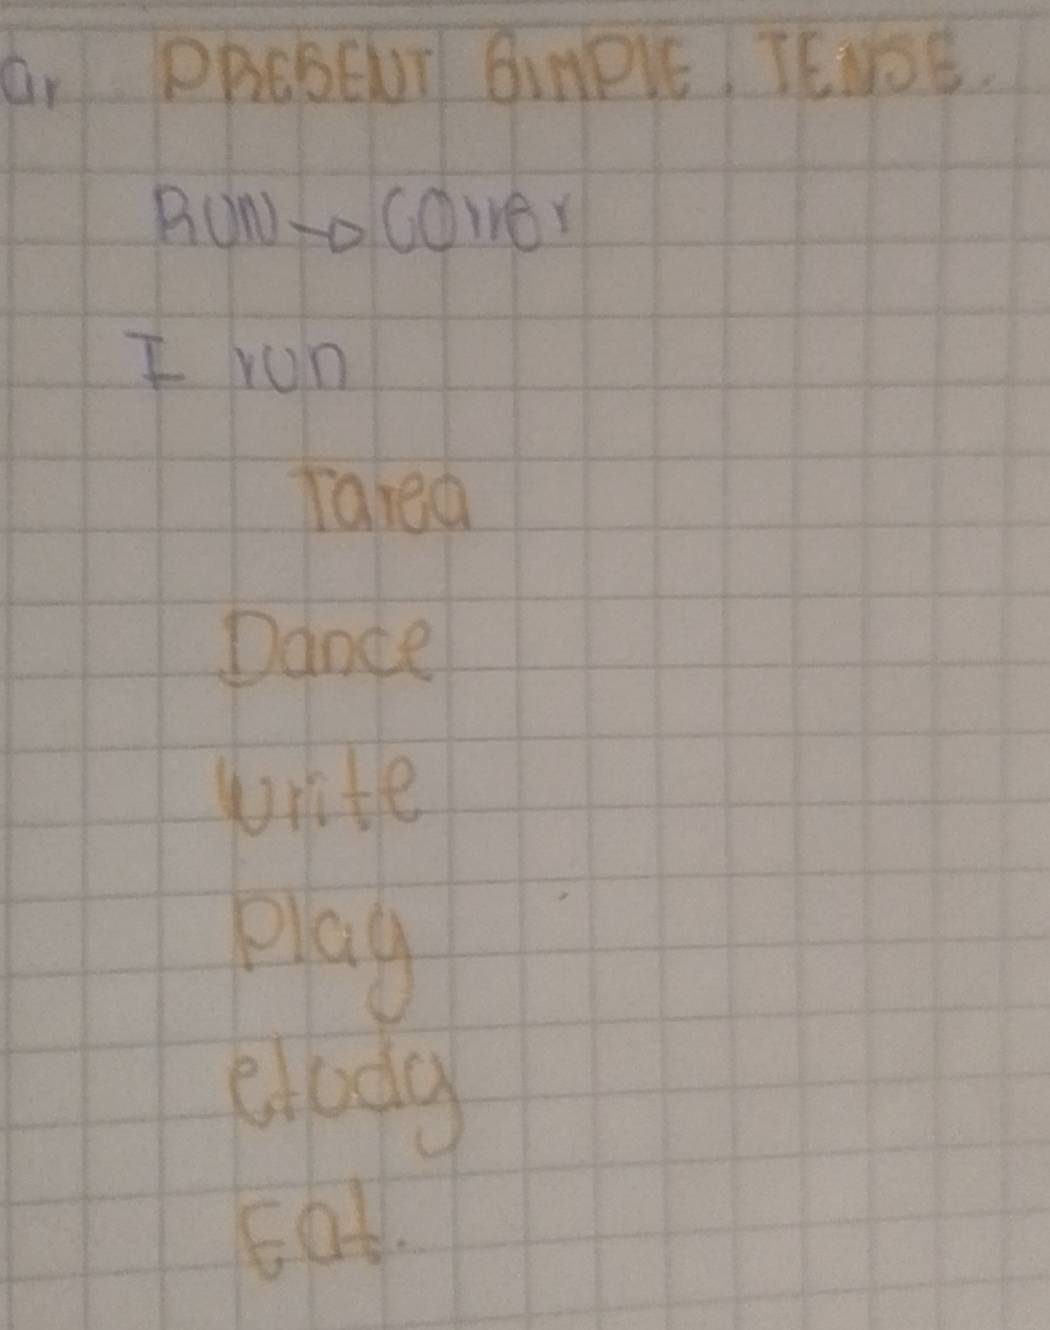 ar PRESENT SIMPLE. TENSE.
RUN → Correr
I run
Tarea
Dance
write
Play
etudy
Eat.